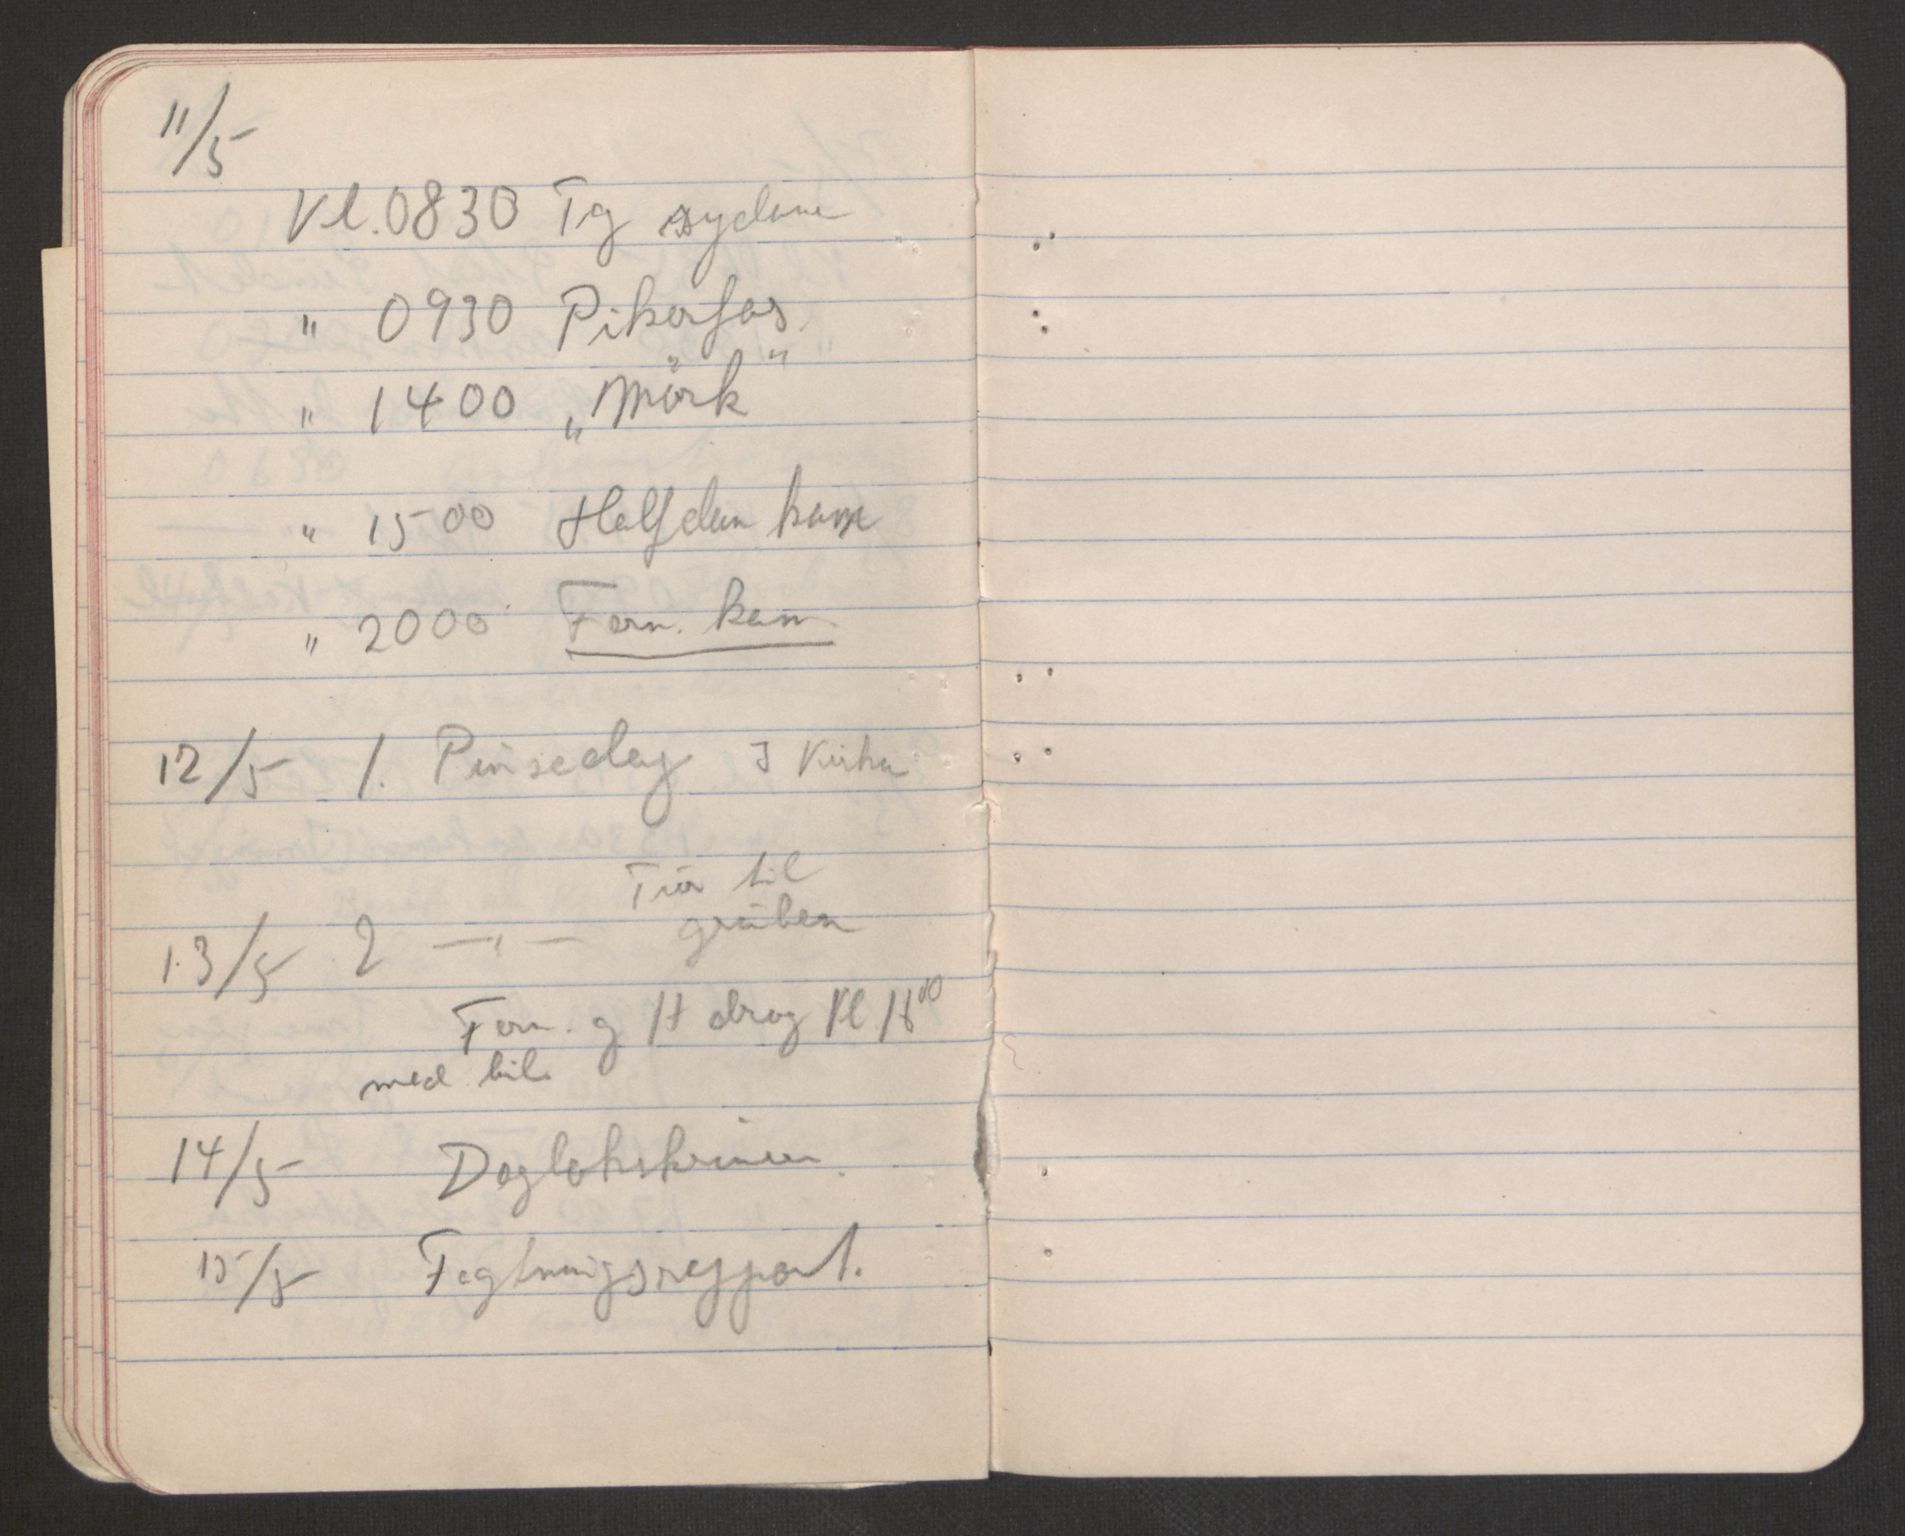 11/5
Kl. 0830 Tg sydover
" 0930 Pikerfos
" 1400 "Mörk"
" 1500 Halfdan kom
" 2000 Fern. kom
12/5 1. Pinsedag I Kirke
Tur til
13/5 2 —"— gruben
Fern. og H drog Kl 16⁰⁰
med bil.
14/5
15/5 Fegtningsrepport.